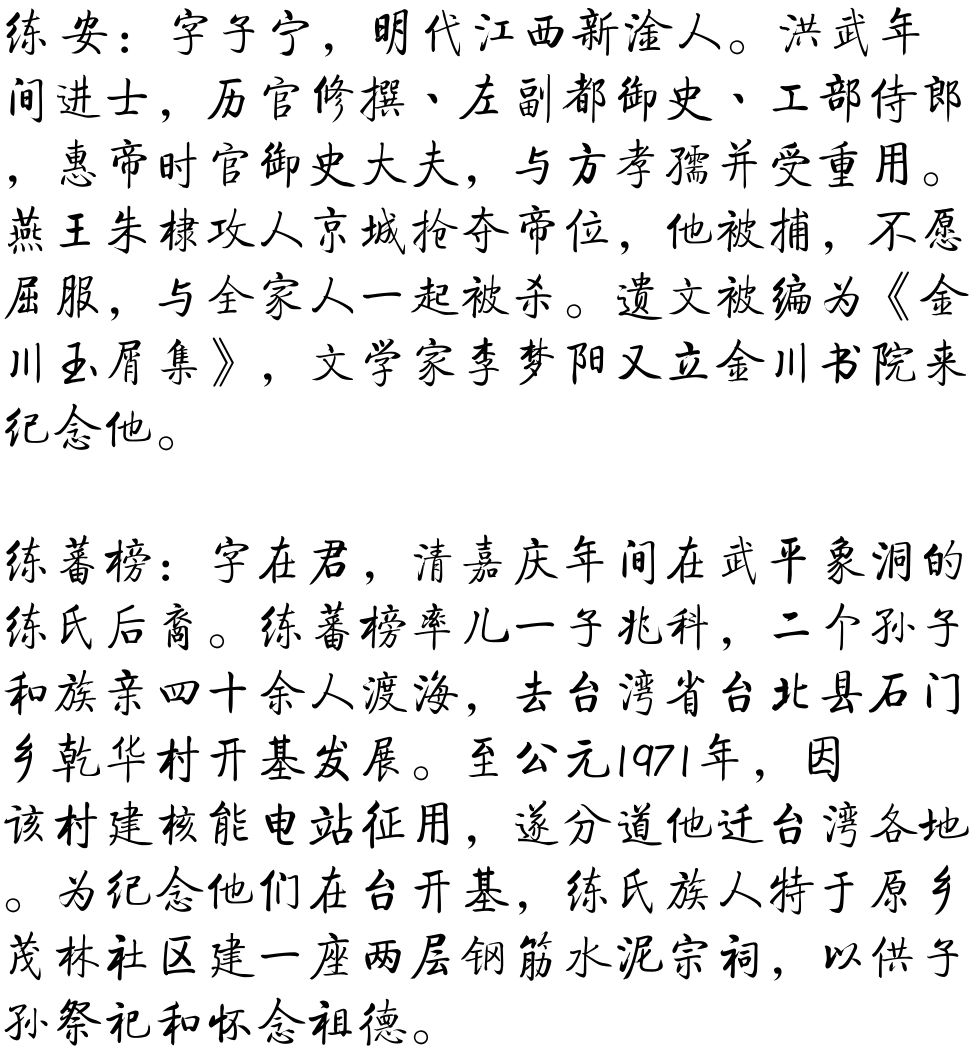 练安：字子宁，明代江西新淦人。洪武年
间进士，历官修撰、左副都御史、工部侍郎
，惠帝时官御史大夫，与方孝孺并受重用。
燕王朱棣攻人京城抢夺帝位，他被捕，不愿
屈服，与全家人一起被杀。遗文被编为《金
川玉屑集》，文学家李梦阳又立金川书院来
纪念他。
练蕃榜：字在君，清嘉庆年间在武平象洞的
练氏后裔。练蕃榜率儿一子兆科，二个孙子
和族亲四十余人渡海，去台湾省台北县石门
乡乾华村开基发展。至公元1971年，因
该村建核能电站征用，遂分道他迁台湾各地
。为纪念他们在台开基，练氏族人特于原乡
茂林社区建一座两层钢筋水泥宗祠，以供子
孙祭祀和怀念祖德。